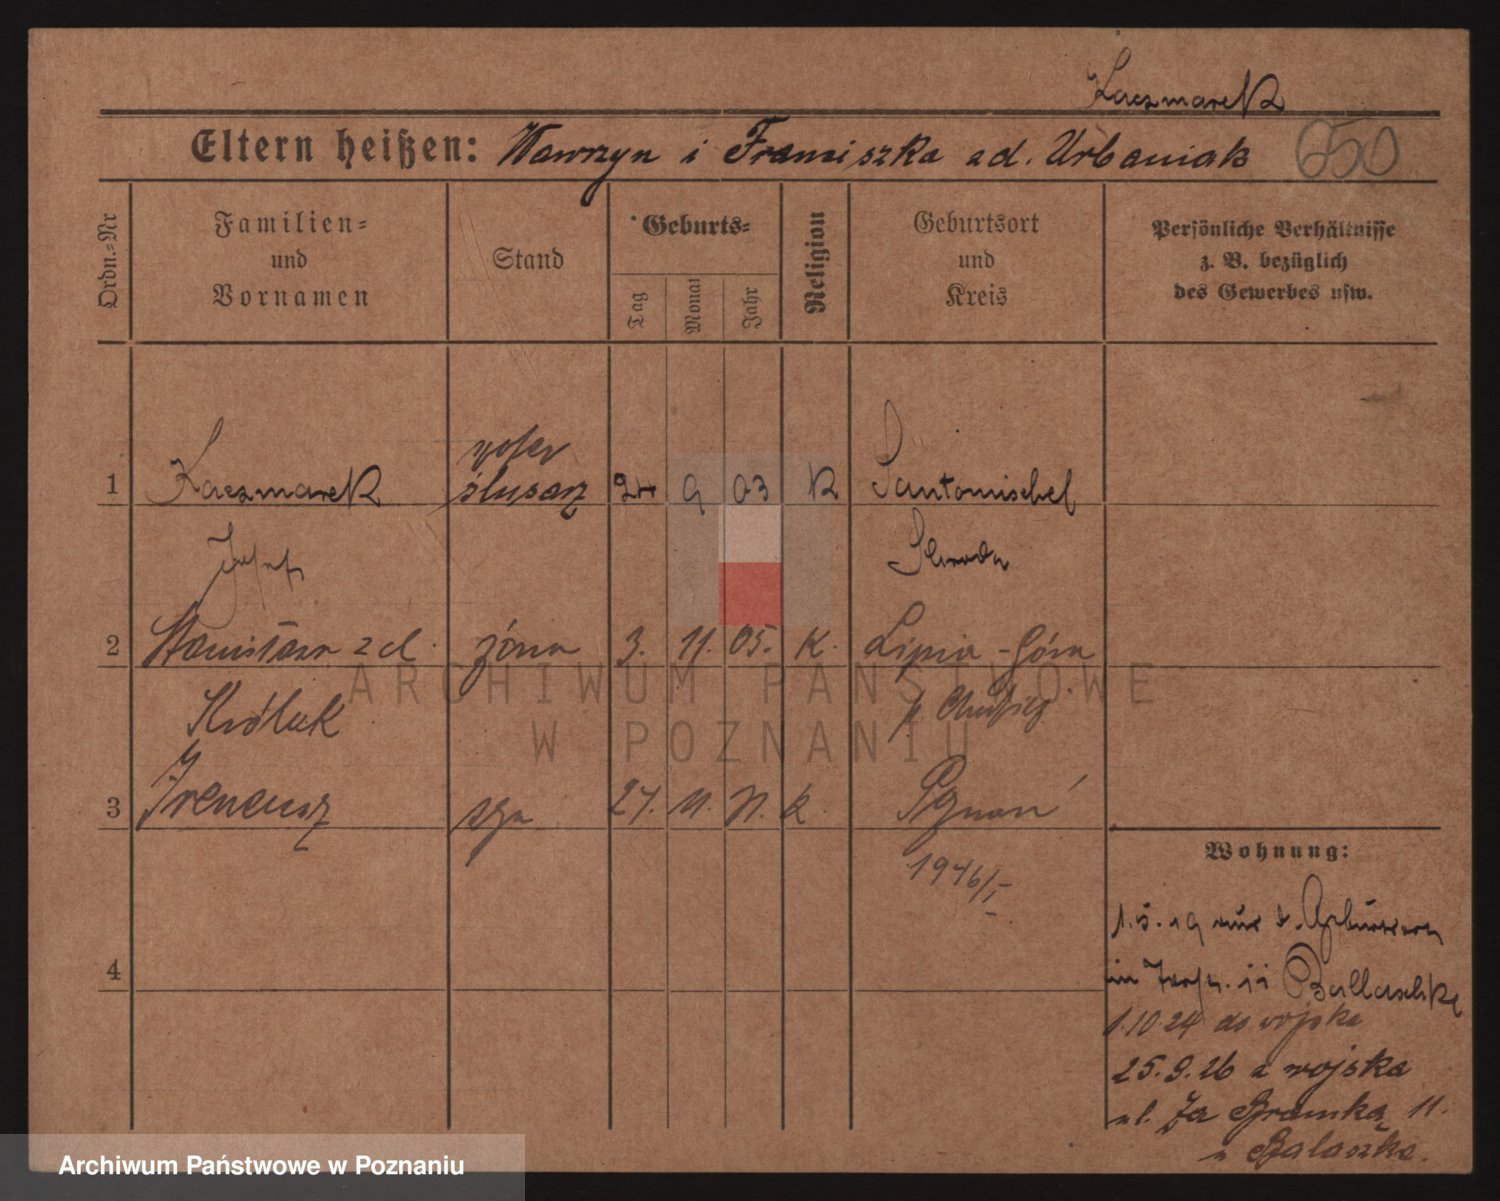 Kaczmarek
Eltern heißen: Wawrzyn i Franciszka zd. Urbaniak 650
Ordn.-Nr
Familien-
und
Vornamen
Stand
Geburts-
Tag
Monat
Jahr
Religion
Geburtsort
und
Kreis
Persönliche Verhältnisse
z. B. bezüglich
des Gewerbes usw.
1 Kaczmarek ślusarz 24 9 03 K Santomischel
Józef Schroda
2 Stanisława zd. żona 3. 11. 05. K. Lipia-Góra
Królak p. Chodzież
3 Ireneusz syn 27. 11. 31. k. Poznań
1946/I
4
Wohnung:
1.5.19
Ballaschke
1.10.24 do wojska
25.9.26 z wojska
ul. Za Bramką 11.
u Balaszka.
ARCHIWUM PAŃSTWOWE
W POZNANIU
Archiwum Państwowe w Poznaniu